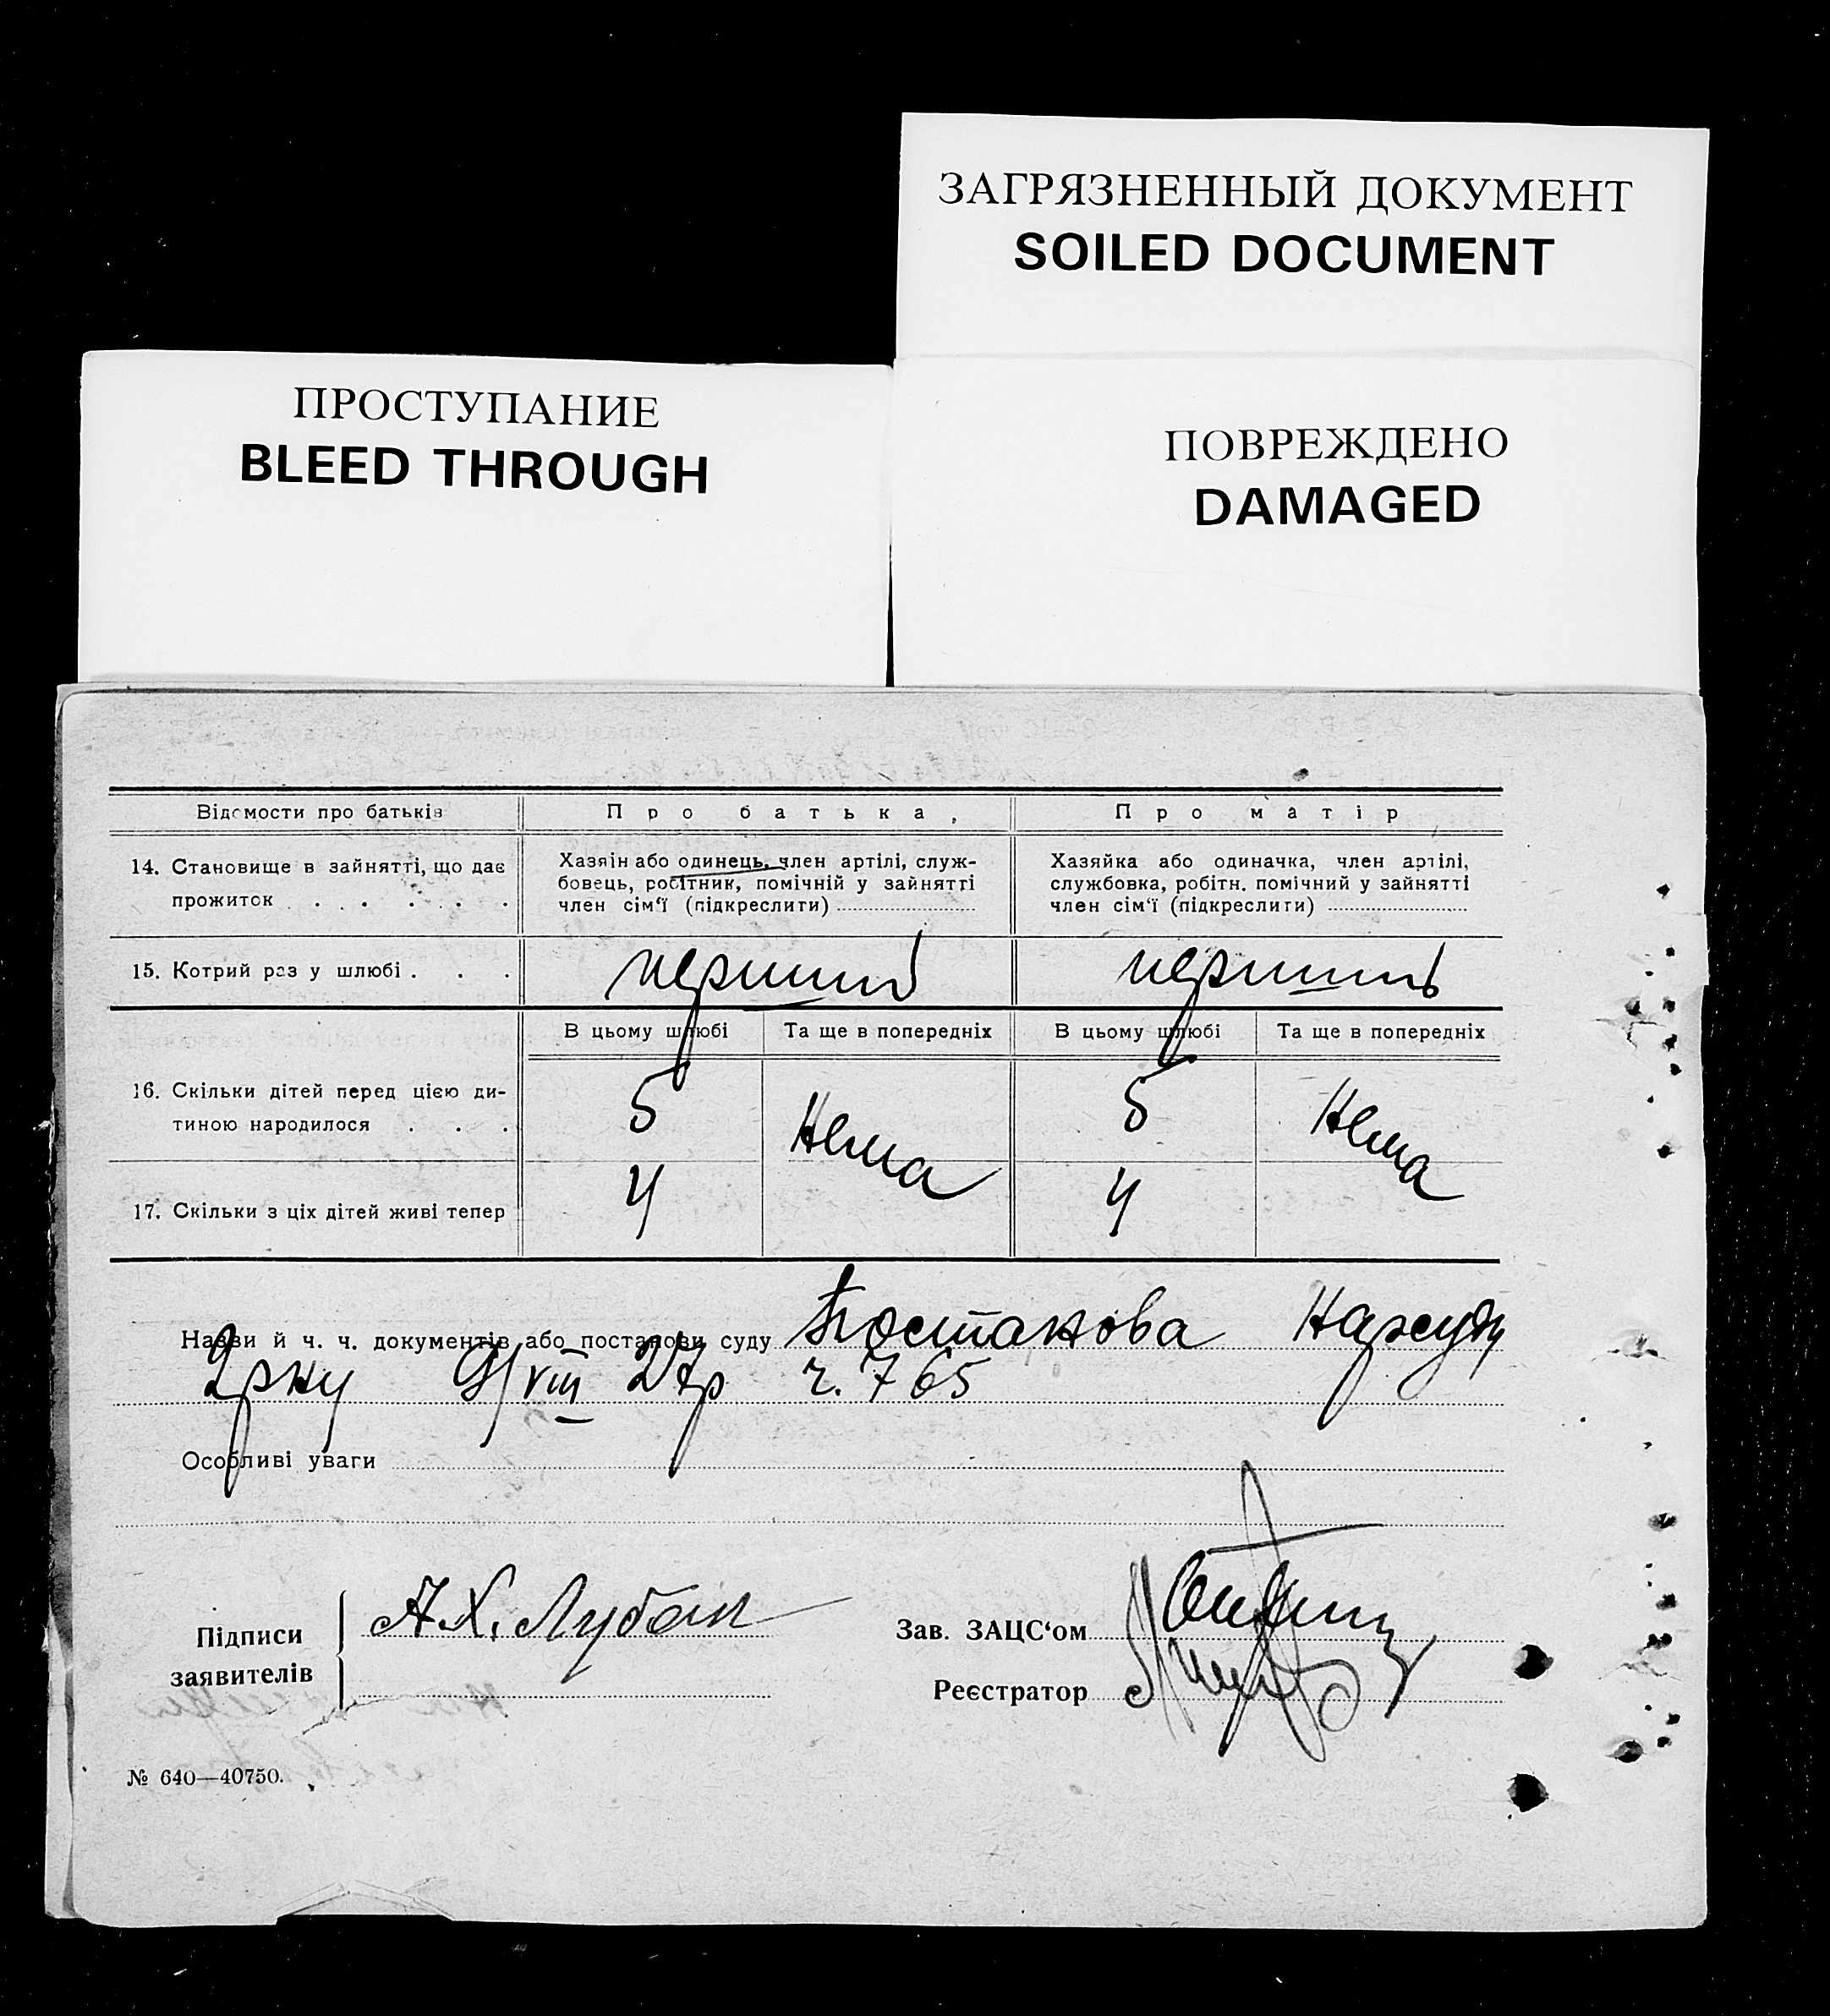 ЗАГРЯЗНЕННЫЙ ДОКУМЕНТ
SOILED DOCUMENT
ПРОСТУПАНИЕ
BLEED THROUGH
ПОВРЕЖДЕНО
DAMAGED
Відомости про батьків
Про батька,
Про матір
14. Становище в зайнятті, що дає
прожиток . . . . . .
Хазяін або одинець, член артілі, служ-
бовець, робітник, помічній у зайнятті
член сім'ї (підкреслити)
Хазяйка або одиначка, член артілі,
службовка, робітн. помічний у зайнятті
член сім'ї (підкреслити)
15. Котрий раз у шлюбі . . .
перший
перший
В цьому шлюбі
Та ще в попередніх
В цьому шлюбі
Та ще в попередніх
16. Скільки дітей перед цією ди-
тиною народилося . . .
5
Нема
5
Нема
17. Скільки з ціх дітей живі тепер
4
4
Назви й ч. ч. документів або постанови суду Постанова Нарсуду
VIII 27р ч. 765
Особливі уваги
Підписи
заявителів
А.Х. Лубан
Зав. ЗАЦС'ом
Реєстратор
№ 640—40750.